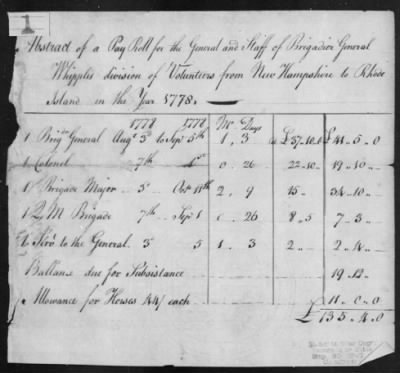 1
Abstract of a Pay Roll for the General and Staff of Brigadier General
Whipples division of Volunteers from New Hampshire to Rhode
Island in the Year 1778
1778 1778 Mo Days
1 Brigr General Augt 3d to Sept 5th 1 .. 3 @ £ 37 .. 10 .. 0 £ 41 .. 5 .. 0
1 Colonel 7th 1st 0 .. 26 22 .. 10 19 .. 10 .. 0
1 Brigade Major .. 3d Octr 11th 2 .. 9 15 .. 34 .. 10 ..
1 Q M Brigade 7th Sept 1 0 .. 26 8 .. 5 7 .. 3 ..
2 Servts to the General 3d 5 1 .. 3 2 .. 2 .. 4 ..
Ballance due for Subsistance 19 .. 12 ..
Allowance for Horses 44/ each 11 .. 0 .. 0
£ 135 .. 4 .. 0